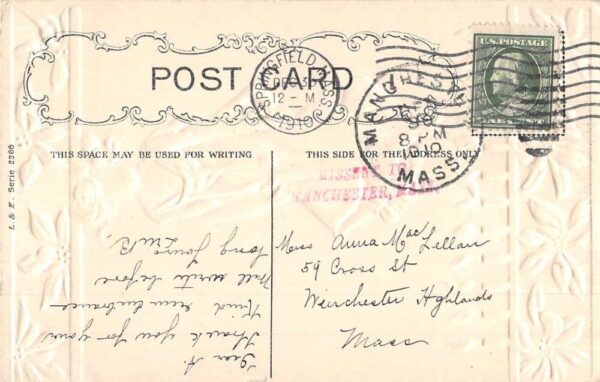 POST CARD
SPRINGFIELD, MASS.
DEC 31
12 - M
1910
MANCHESTER
8 PM
1910
MASS.
U.S. POSTAGE
THIS SPACE MAY BE USED FOR WRITING
THIS SIDE FOR THE ADDRESS ONLY
L & E. Serie 2266
MISSENT TO
MANCHESTER, MASS.
Dear A.
Thank you for your
Kind
Will write before
long Yours
Miss Anna MacLellan
59 Cross St
Winchester Highlands
Mass